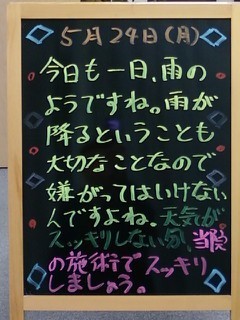 5月24日(月)
今日も一日、雨の
ようですね。雨が
降るということも
大切なことなので
嫌がってはいけない
んですよね。天気が
スッキリしない分、当院
の施術でスッキリ
しましょう。